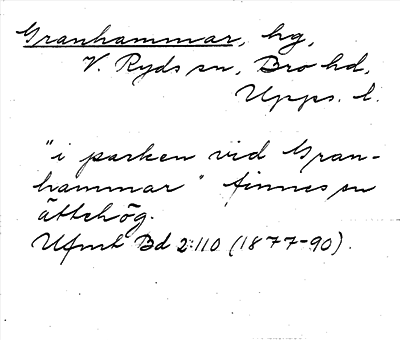 Granhammar, hg,
V. Ryds sn, Bro hd,
Upps. l.
"i parken vid Gran-
hammar" finnes en
ättehög.
Ufmt Bd 2:110 (1877-90).